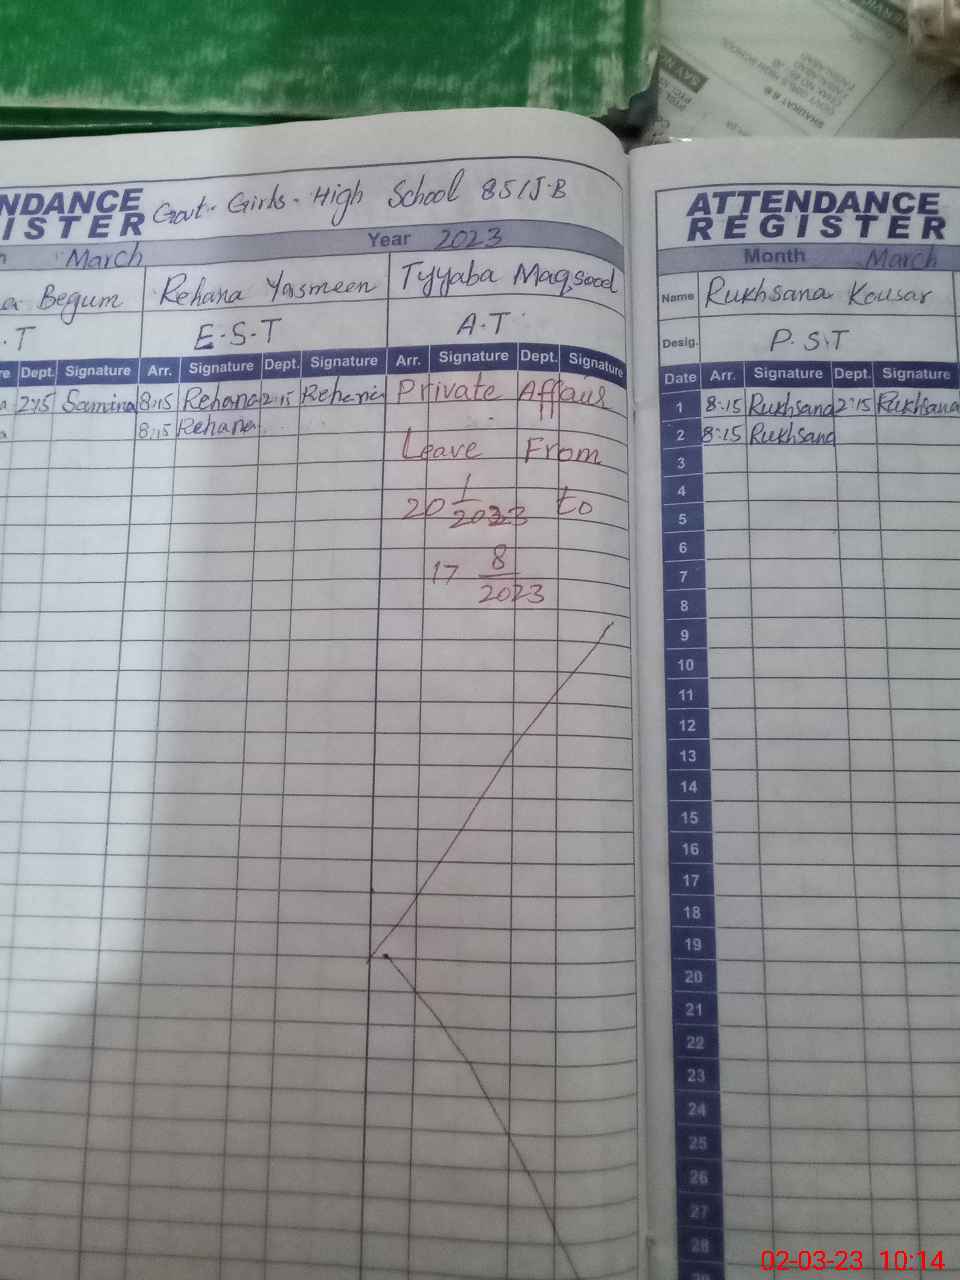 NDANCE Govt. Girls. High School 85/J.B
ISTER
March Year 2023
Begum Rehana Yasmeen Tyyaba Maqsood
.T E.S.T A.T
Dept. Signature Arr. Signature Dept. Signature Arr. Signature Dept. Signature
2:15 Samina 8:15 Rehana 2:15 Rehana Private Affair
8:15 Rehana
Leave From
20 1/2023 to
17 8/2023
ATTENDANCE
REGISTER
Month March
Name Rukhsana Kousar
Desig. P.S.T
Date Arr. Signature Dept. Signature
1 8:15 Rukhsana 2:15 Rukhsana
2 8:15 Rukhsana
3
4
5
6
7
8
9
10
11
12
13
14
15
16
17
18
19
20
21
22
23
24
25
26
27
28
02-03-23 10:14